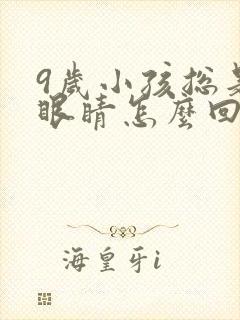 9歲小孩總是
眼睛怎麼回
海皇牙i